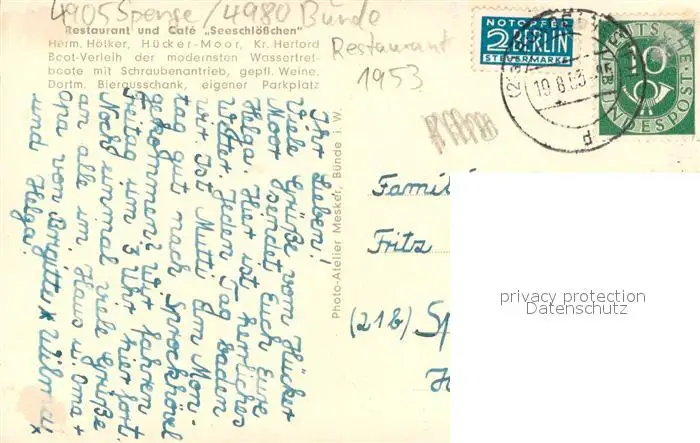 4905 Spenge / 4980 Bünde
Restaurant und Café „Seeschlößchen"
Herm. Hölker, Hücker-Moor, Kr. Herford
Boot-Verleih der modernsten Wassertret-
boote mit Schraubenantrieb, gepfl. Weine.
Dortm. Bierausschank, eigener Parkplatz
Restaurant
1953
NOTOPFER
2 BERLIN
STEUERMARKE
10.8.53
d
DEUTSCHE
10
BUNDESPOST
Ihr Lieben!
Viele Grüße vom Hücker
Moor sendet Euch Eure
Helga. Hier ist herrliches
Wetter. Jeden Tag baden
wir. Ist Mutti am Mon-
tag gut nach Sprockhövel
gekommen? Wir fahren
Freitag um 3 Uhr hier fort.
Noch einmal viele Grüße
an alle im Haus u. Oma +
Opa von Brigitte, Wilma,
und Helga.
Photo-Atelier Mesker, Bünde i. W.
Famil
Fritz
(21b) Sp
H
privacy protection
Datenschutz